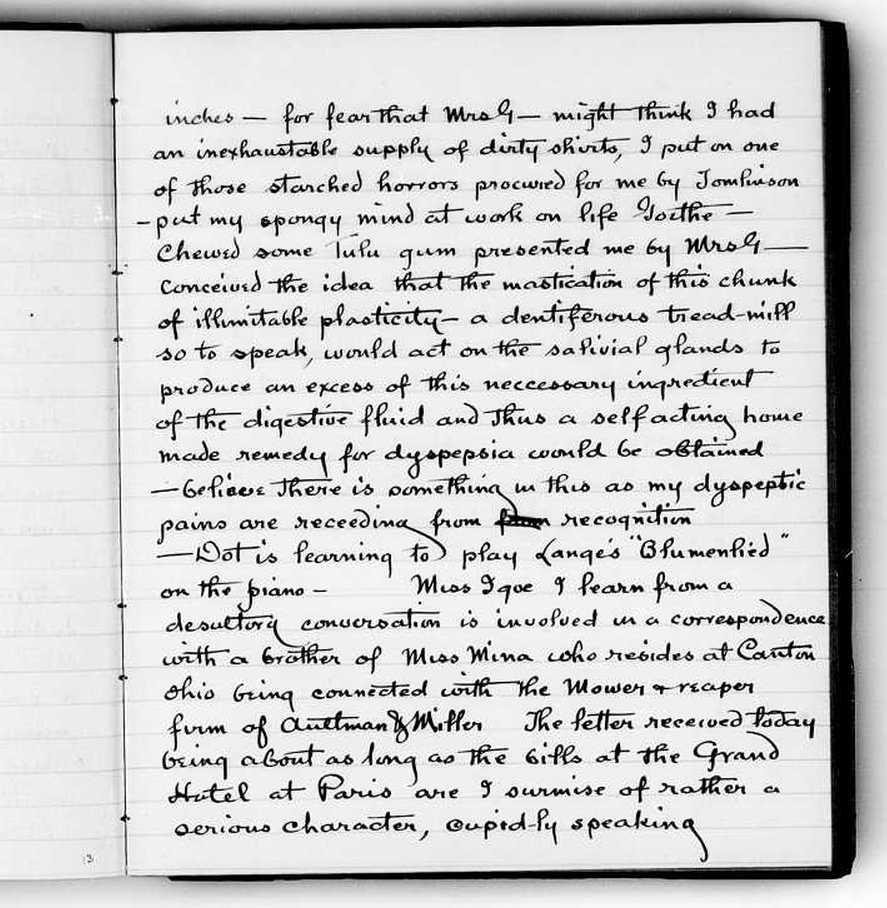 inches — for fear that Mrs G— might think I had
an inexhaustable supply of dirty shirts, I put on one
of those starched horrors procured for me by Tomlinson
—put my spongy mind at work on life Goethe —
Chewed some Tulu gum presented me by Mrs G—
Conceived the idea that the mastication of this chunk
of illimitable plasticity— a dentiferous tread-mill
so to speak, would act on the salivial glands to
produce an excess of this neccessary ingredient
of the digestive fluid and thus a selfacting home
made remedy for dyspepsia would be obtained
—believe there is something in this as my dyspeptic
pains are receeding from from recognition
—Dot is learning to play Lange's "Blumenlied"
on the piano — Miss Igoe I learn from a
desultory conversation is involved in a correspondence
with a brother of Miss Mina who resides at Canton
Ohio being connected with the Mower & reaper
firm of Aultman & Miller The letter received today
being about as long as the bills at the Grand
Hotel at Paris are I surmise of rather a
serious character, cupid-ly speaking
13